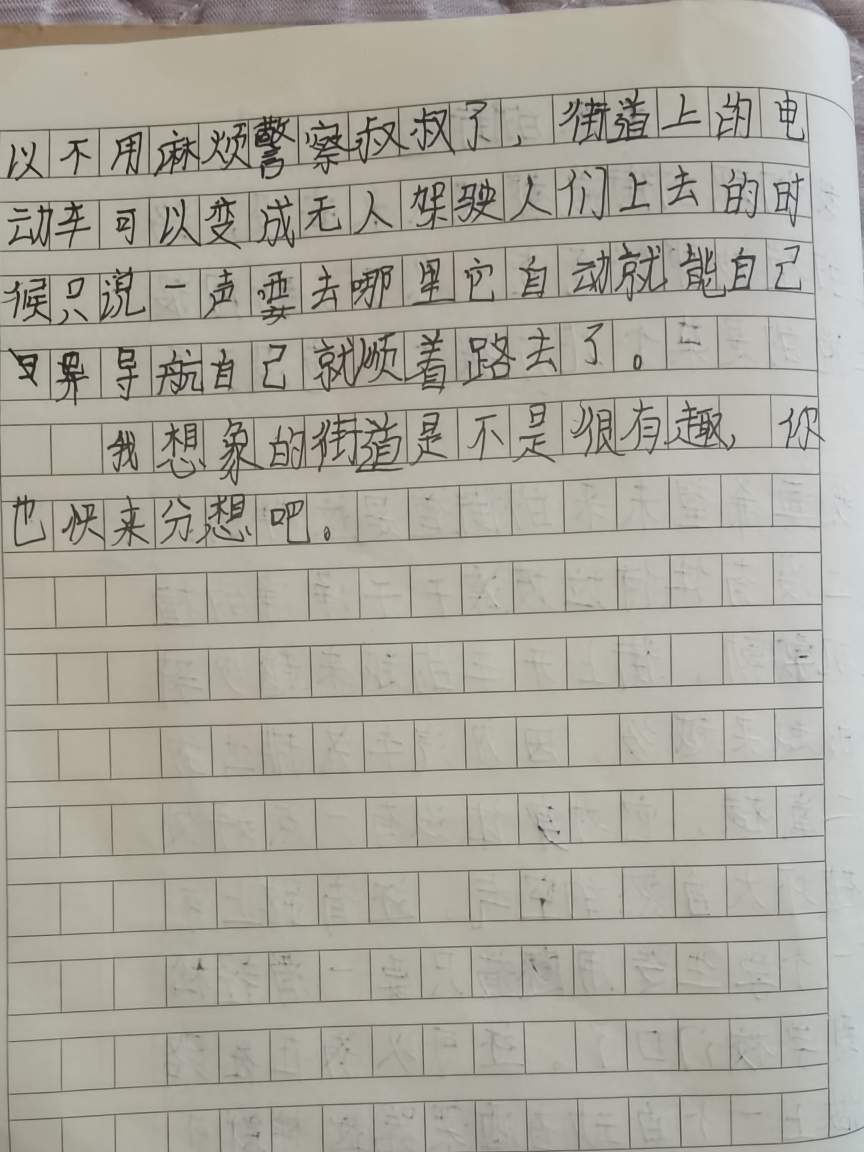 以不用麻烦警察叔叔了，街道上的电
动车可以变成无人驾驶人们上去的时
候只说一声要去哪里它自动就能自己
导航自己就顺着路去了。
我想象的街道是不是很有趣，你
也快来分想吧。